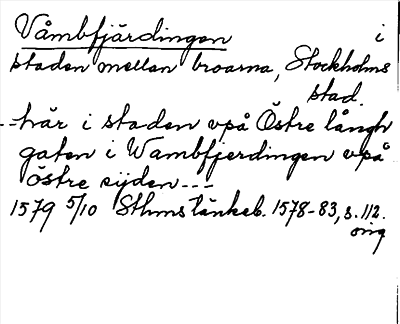 Våmbfjärdingen i
staden mellan broarna, Stockholms
stad.
--här i staden vpå Östre långh
gaten i Wambfjerdingen vpå
östre sijden ---
1579 5/10 Sthms tänkeb. 1578-83, s. 112.
orig